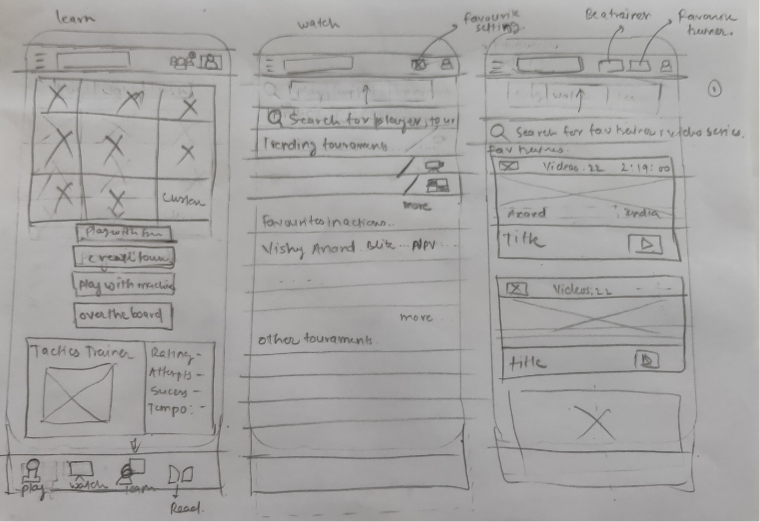 learn
Custom
Play with
Play with machine
over the board
Tactics Trainer
Rating -
Attempts -
Sucess -
Tempo: -
Play
Watch
learn
Read.
watch
favourite setting.
Search for player, tour
Trending tournaments
more
Favourites in actions..
Vishy Anand Blitz
more
other tournaments.
Be a trainer
Favourite
Search for fav trainer / video series.
fav trainers.
Videos: 22 2:19:00
Anand India
Title
Videos: 22
Title